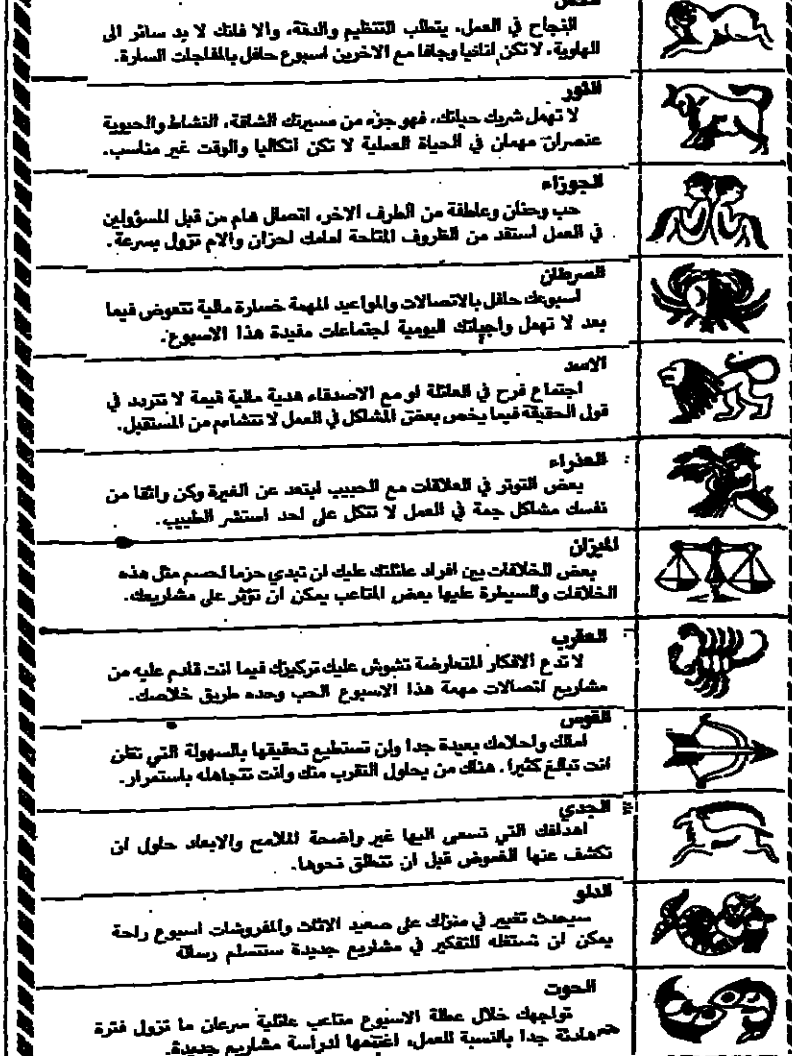 الحمل
النجاح في العمل، يتطلب التنظيم والدقة، والا فانك لا بد سائر الى
الهاوية، لا تكن انانيا وجافا مع الاخرين اسبوع حافل بالمفاجات السارة.
الثور
لا تهمل شريك حياتك، فهو جزء من مسيرتك الشاقة، النشاط والحيوية
عنصران مهمان في الحياة العملية لا تكن اتكاليا والوقت غير مناسب.
الجوزاء
حب وحنان وعاطفة من الطرف الاخر، اتصال هام من قبل المسؤولين
في العمل استفد من الظروف المتاحة امامك احزان والام تزول بسرعة.
السرطان
اسبوعك حافل بالاتصالات والمواعيد المهمة خسارة مالية تتعوض فيما
بعد لا تهمل واجباتك اليومية اجتماعات مفيدة هذا الاسبوع.
الاسد
اجتماع فرح في العائلة او مع الاصدقاء هدية مالية قيمة لا تتردد في
قول الحقيقة فيما يخص بعض المشاكل في العمل لا تتشاءم من المستقبل.
العذراء
بعض التوتر في العلاقات مع الحبيب ابتعد عن الغيرة وكن واثقا من
نفسك مشاكل جمة في العمل لا تتكل على احد استشر الطبيب.
الميزان
بعض الخلافات بين افراد عائلتك عليك ان تبدي حزما لحسم مثل هذه
الخلافات والسيطرة عليها بعض المتاعب يمكن ان تؤثر على مشاريعك.
العقرب
لا تدع الافكار المتعارضة تشوش عليك تركيزك فيما انت قادم عليه من
مشاريع اتصالات مهمة هذا الاسبوع الحب وحده طريق خلاصك.
القوس
امالك واحلامك بعيدة جدا ولن تستطيع تحقيقها بالسهولة التي تظن
انت تبالغ كثيرا، هناك من يحاول التقرب منك وانت تتجاهله باستمرار.
الجدي
اهدافك التي تسعى اليها غير واضحة الملامح والابعاد حاول ان
تكشف عنها الغموض قبل ان تنطلق نحوها.
الدلو
سيحدث تغيير في منزلك على صعيد الاثاث والمفروشات اسبوع راحة
يمكن ان تستغله للتفكير في مشاريع جديدة ستتسلم رسالة
الحوت
تواجهك خلال عطلة الاسبوع متاعب عائلية سرعان ما تزول فترة
هادئة جدا بالنسبة للعمل، اغتنمها لدراسة مشاريع جديدة.